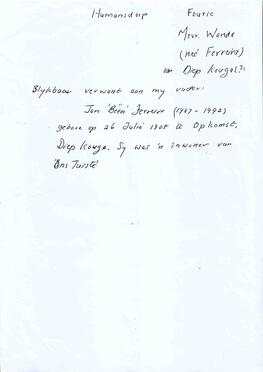 Humansdorp Fourie
Mevr. Wanda
(neé Ferreira)
van Diep Kouga(?)
Blykbaar verwant aan my vader:
Jan 'Been' Ferreira (1907-1992)
gebore op 26 Julie te Opkomst,
Diep Kouga. Sy was 'n inwoner van
'Ons Tuiste'